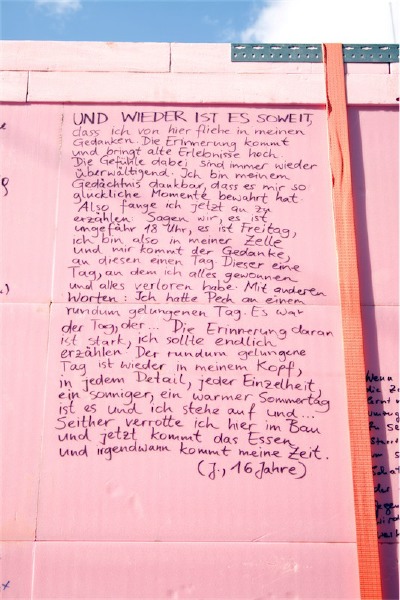 UND WIEDER IST ES SOWEIT,
dass ich von hier fliehe in meinen
Gedanken. Die Erinnerung kommt
und bringt alte Erlebnisse hoch.
Die Gefühle dabei sind immer wieder
überwältigend. Ich bin meinem
Gedächtnis dankbar, dass es mir so
glückliche Momente bewahrt hat.
Also fange ich jetzt an zu
erzählen: Sagen wir, es ist
ungefähr 18 Uhr, es ist Freitag,
ich bin also in meiner Zelle
und mir kommt der Gedanke,
an diesen einen Tag. Dieser eine
Tag, an dem ich alles gewonnen
und alles verloren habe. Mit anderen
Worten: Ich hatte Pech an einem
rundum gelungenen Tag. Es war
der Tag, der... Die Erinnerung daran
ist stark, ich sollte endlich
erzählen. Der rundum gelungene
Tag ist wieder in meinem Kopf,
in jedem Detail, jeder Einzelheit,
ein sonniger, ein warmer Sommertag
ist es und ich stehe auf und...
Seither verrotte ich hier im Bau
und jetzt kommt das Essen
und irgendwann kommt meine Zeit.
(J., 16 Jahre)
Wenn